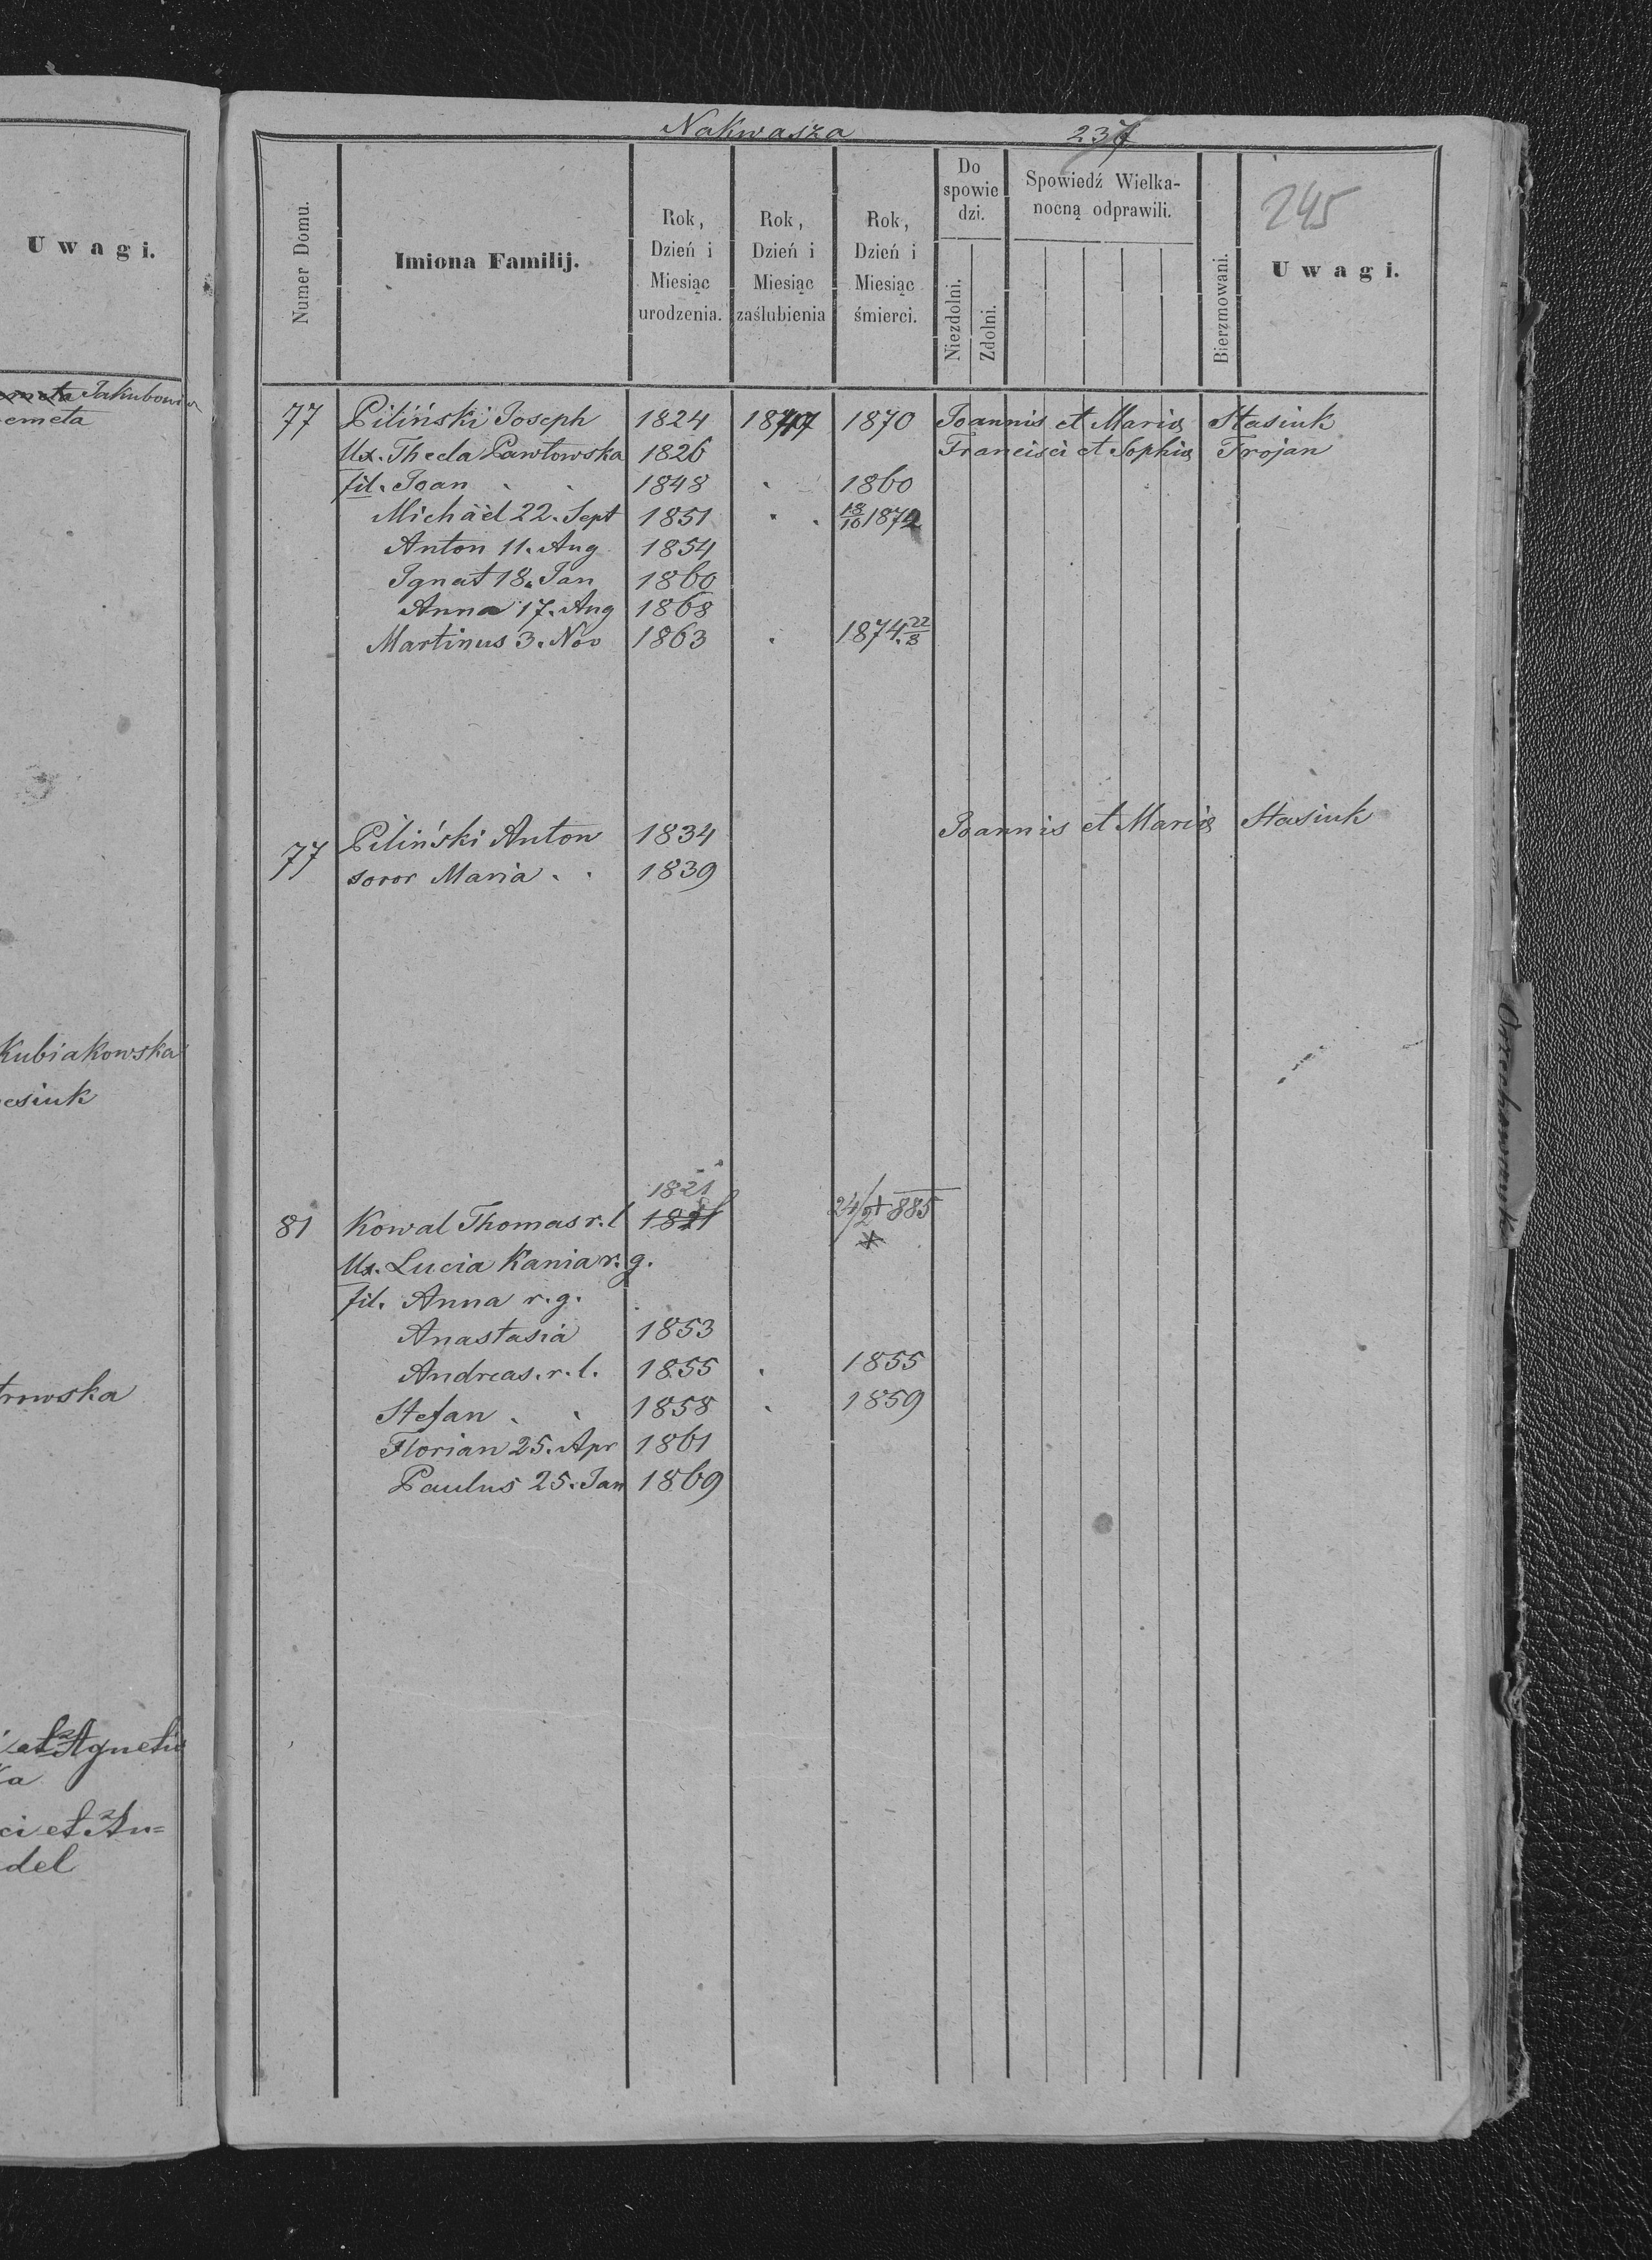 U w a g i.
Jakubowi
emeta
Kubiakowska
esiuk
rowska
et Agnetis
a
ci et An=
del
Nakwasza 237
245
Numer Domu.
Imiona Familij.
Rok,
Dzień i
Miesiąc
urodzenia.
Rok,
Dzień i
Miesiąc
zaślubienia
Rok,
Dzień i
Miesiąc
śmierci.
Do
spowie
dzi.
Niezdolni.
Zdolni.
Spowiedź Wielka-
nocną odprawili.
Bierzmowani.
U w a g i.
77 Piliński Joseph 1824 1847 1870 Joannis et Maria Stasiuk
Ux. Thecla Pawłowska 1826 Francisci et Sophia Trojan
fil. Joan 1848 1860
Michäel 22. Sept 1851 18/10 1872
Anton 11. Aug 1854
Ignat 18. Jan 1860
Anna 17. Aug 1868
Martinus 3. Nov 1863 1874. 22/3
77 Piliński Anton 1834 Joannis et Maria Stasiuk
soror Maria 1839
1821
81 Kowal Thomas r. l 1821 24/2 + 885
Ux. Lucia Kania r. g.
fil. Anna r. g.
Anastasia 1853
Andreas. r. l. 1855 1855
Stefan 1858 1859
Florian 25. Apr 1861
Paulus 25. Jan 1869